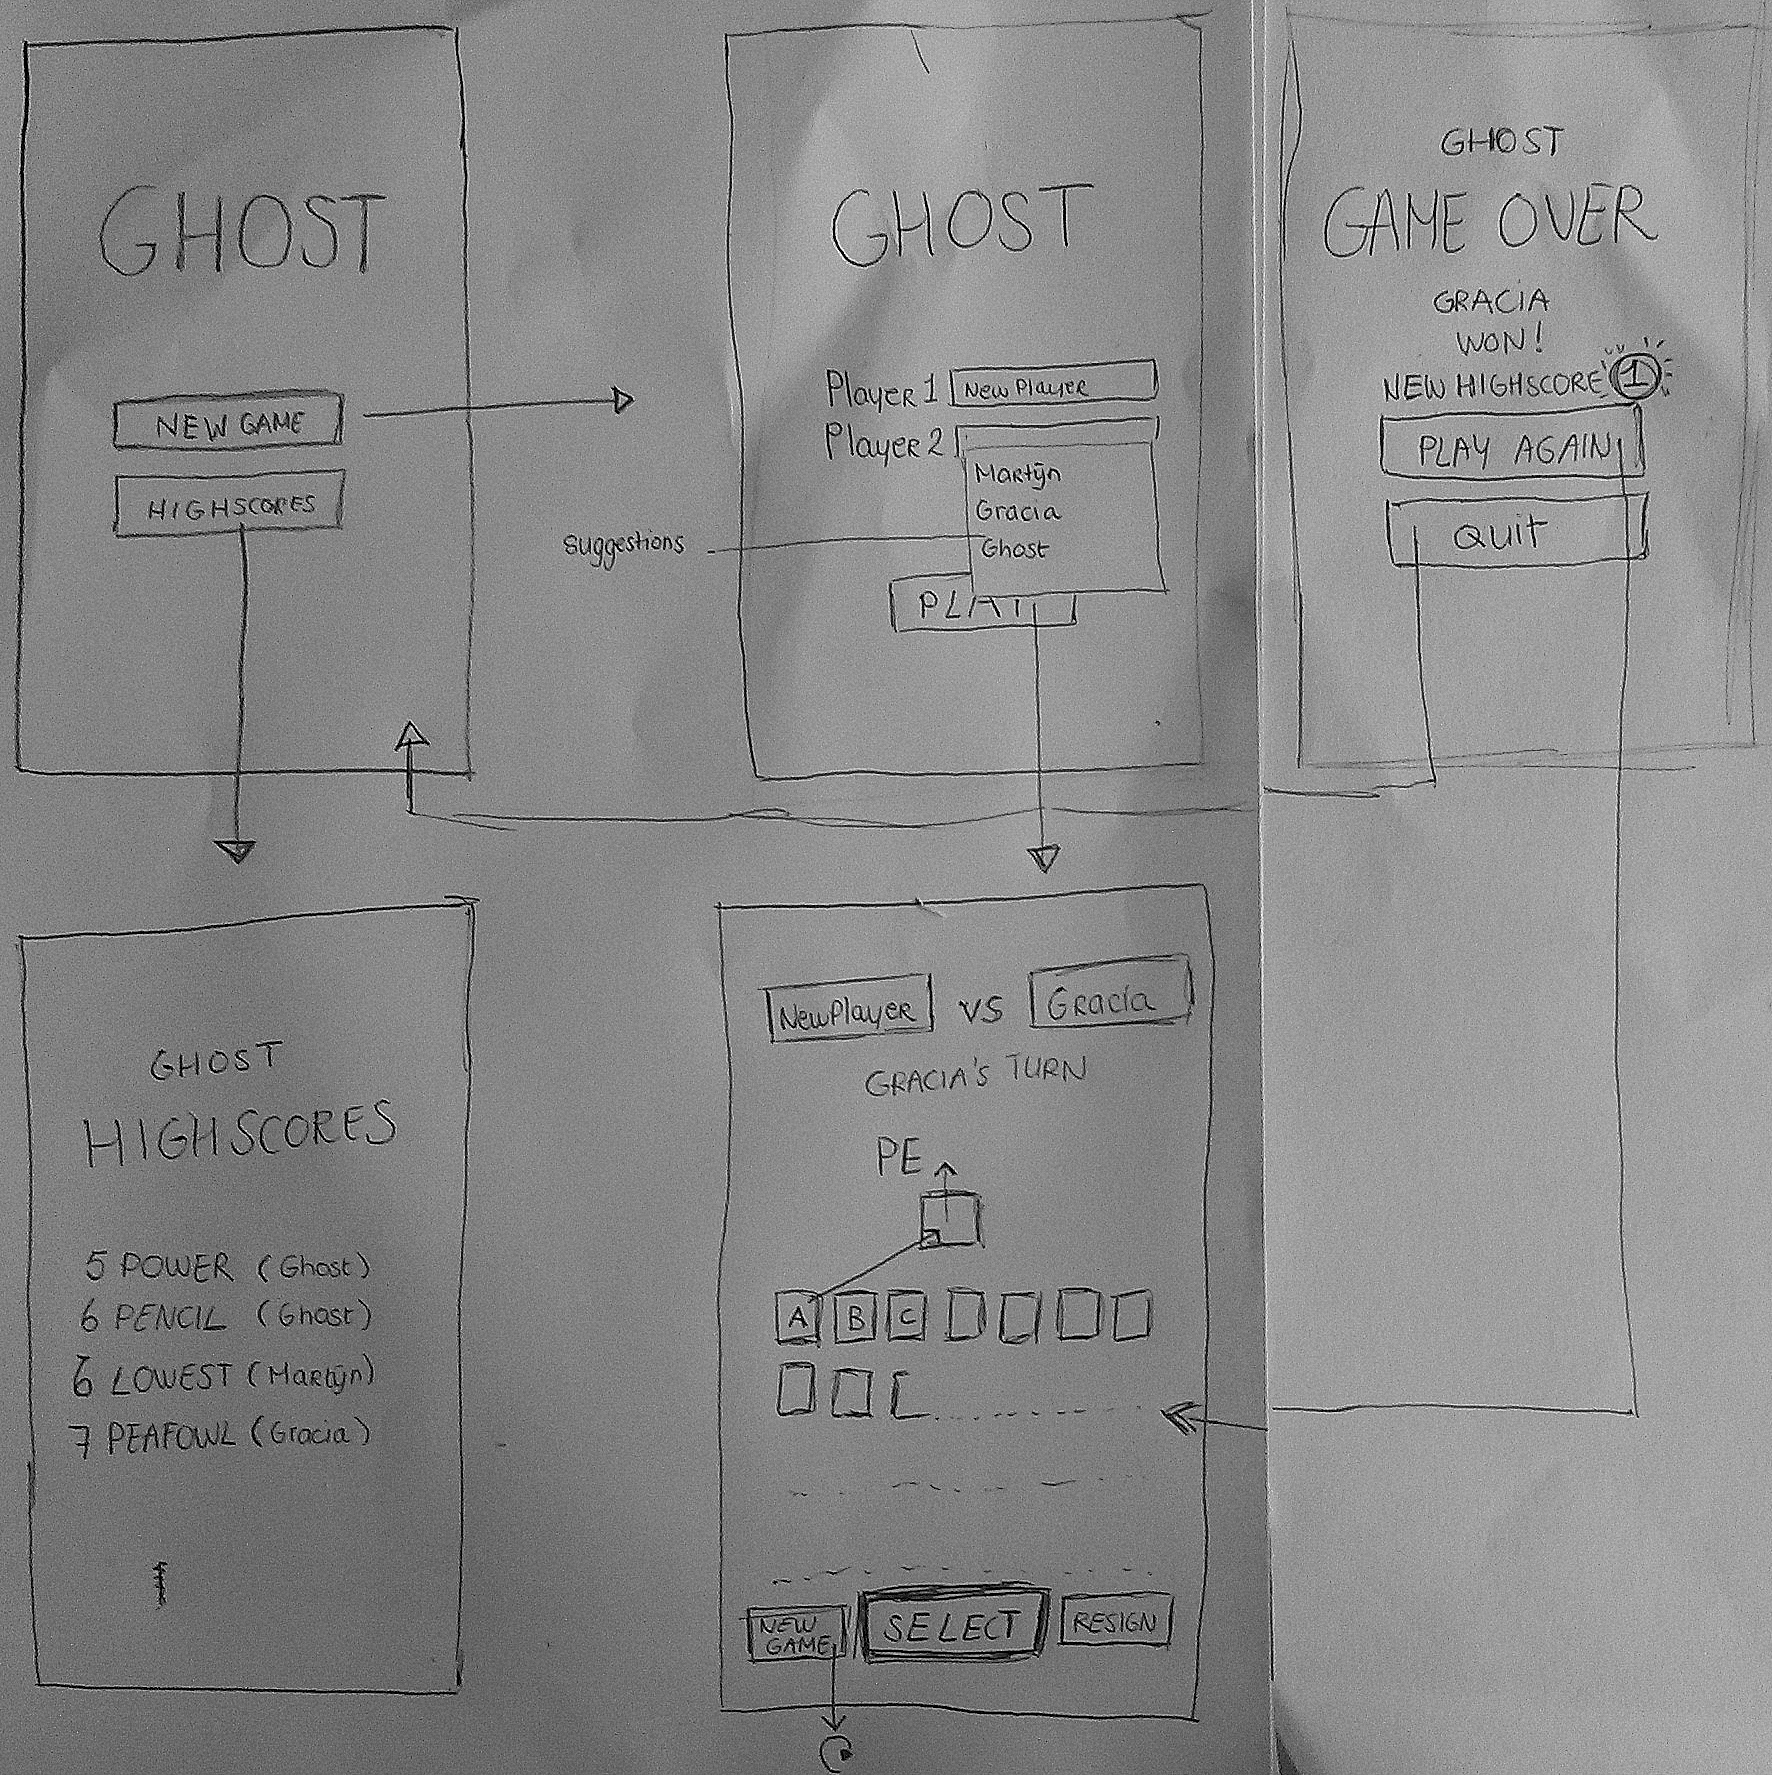 GHOST
NEW GAME
HIGHSCORES
GHOST
Player 1 New Player
Player 2
Martijn
Gracia
Ghost
suggestions
PLAY
GHOST
GAME OVER
GRACIA
WON!
NEW HIGHSCORE 1
PLAY AGAIN
QUIT
GHOST
HIGHSCORES
5 POWER (Ghost)
6 PENCIL (Ghost)
6 LOWEST (Martijn)
7 PEAFOWL (Gracia)
NewPlayer VS Gracia
GRACIA'S TURN
PE
A B C
NEW GAME
SELECT
RESIGN